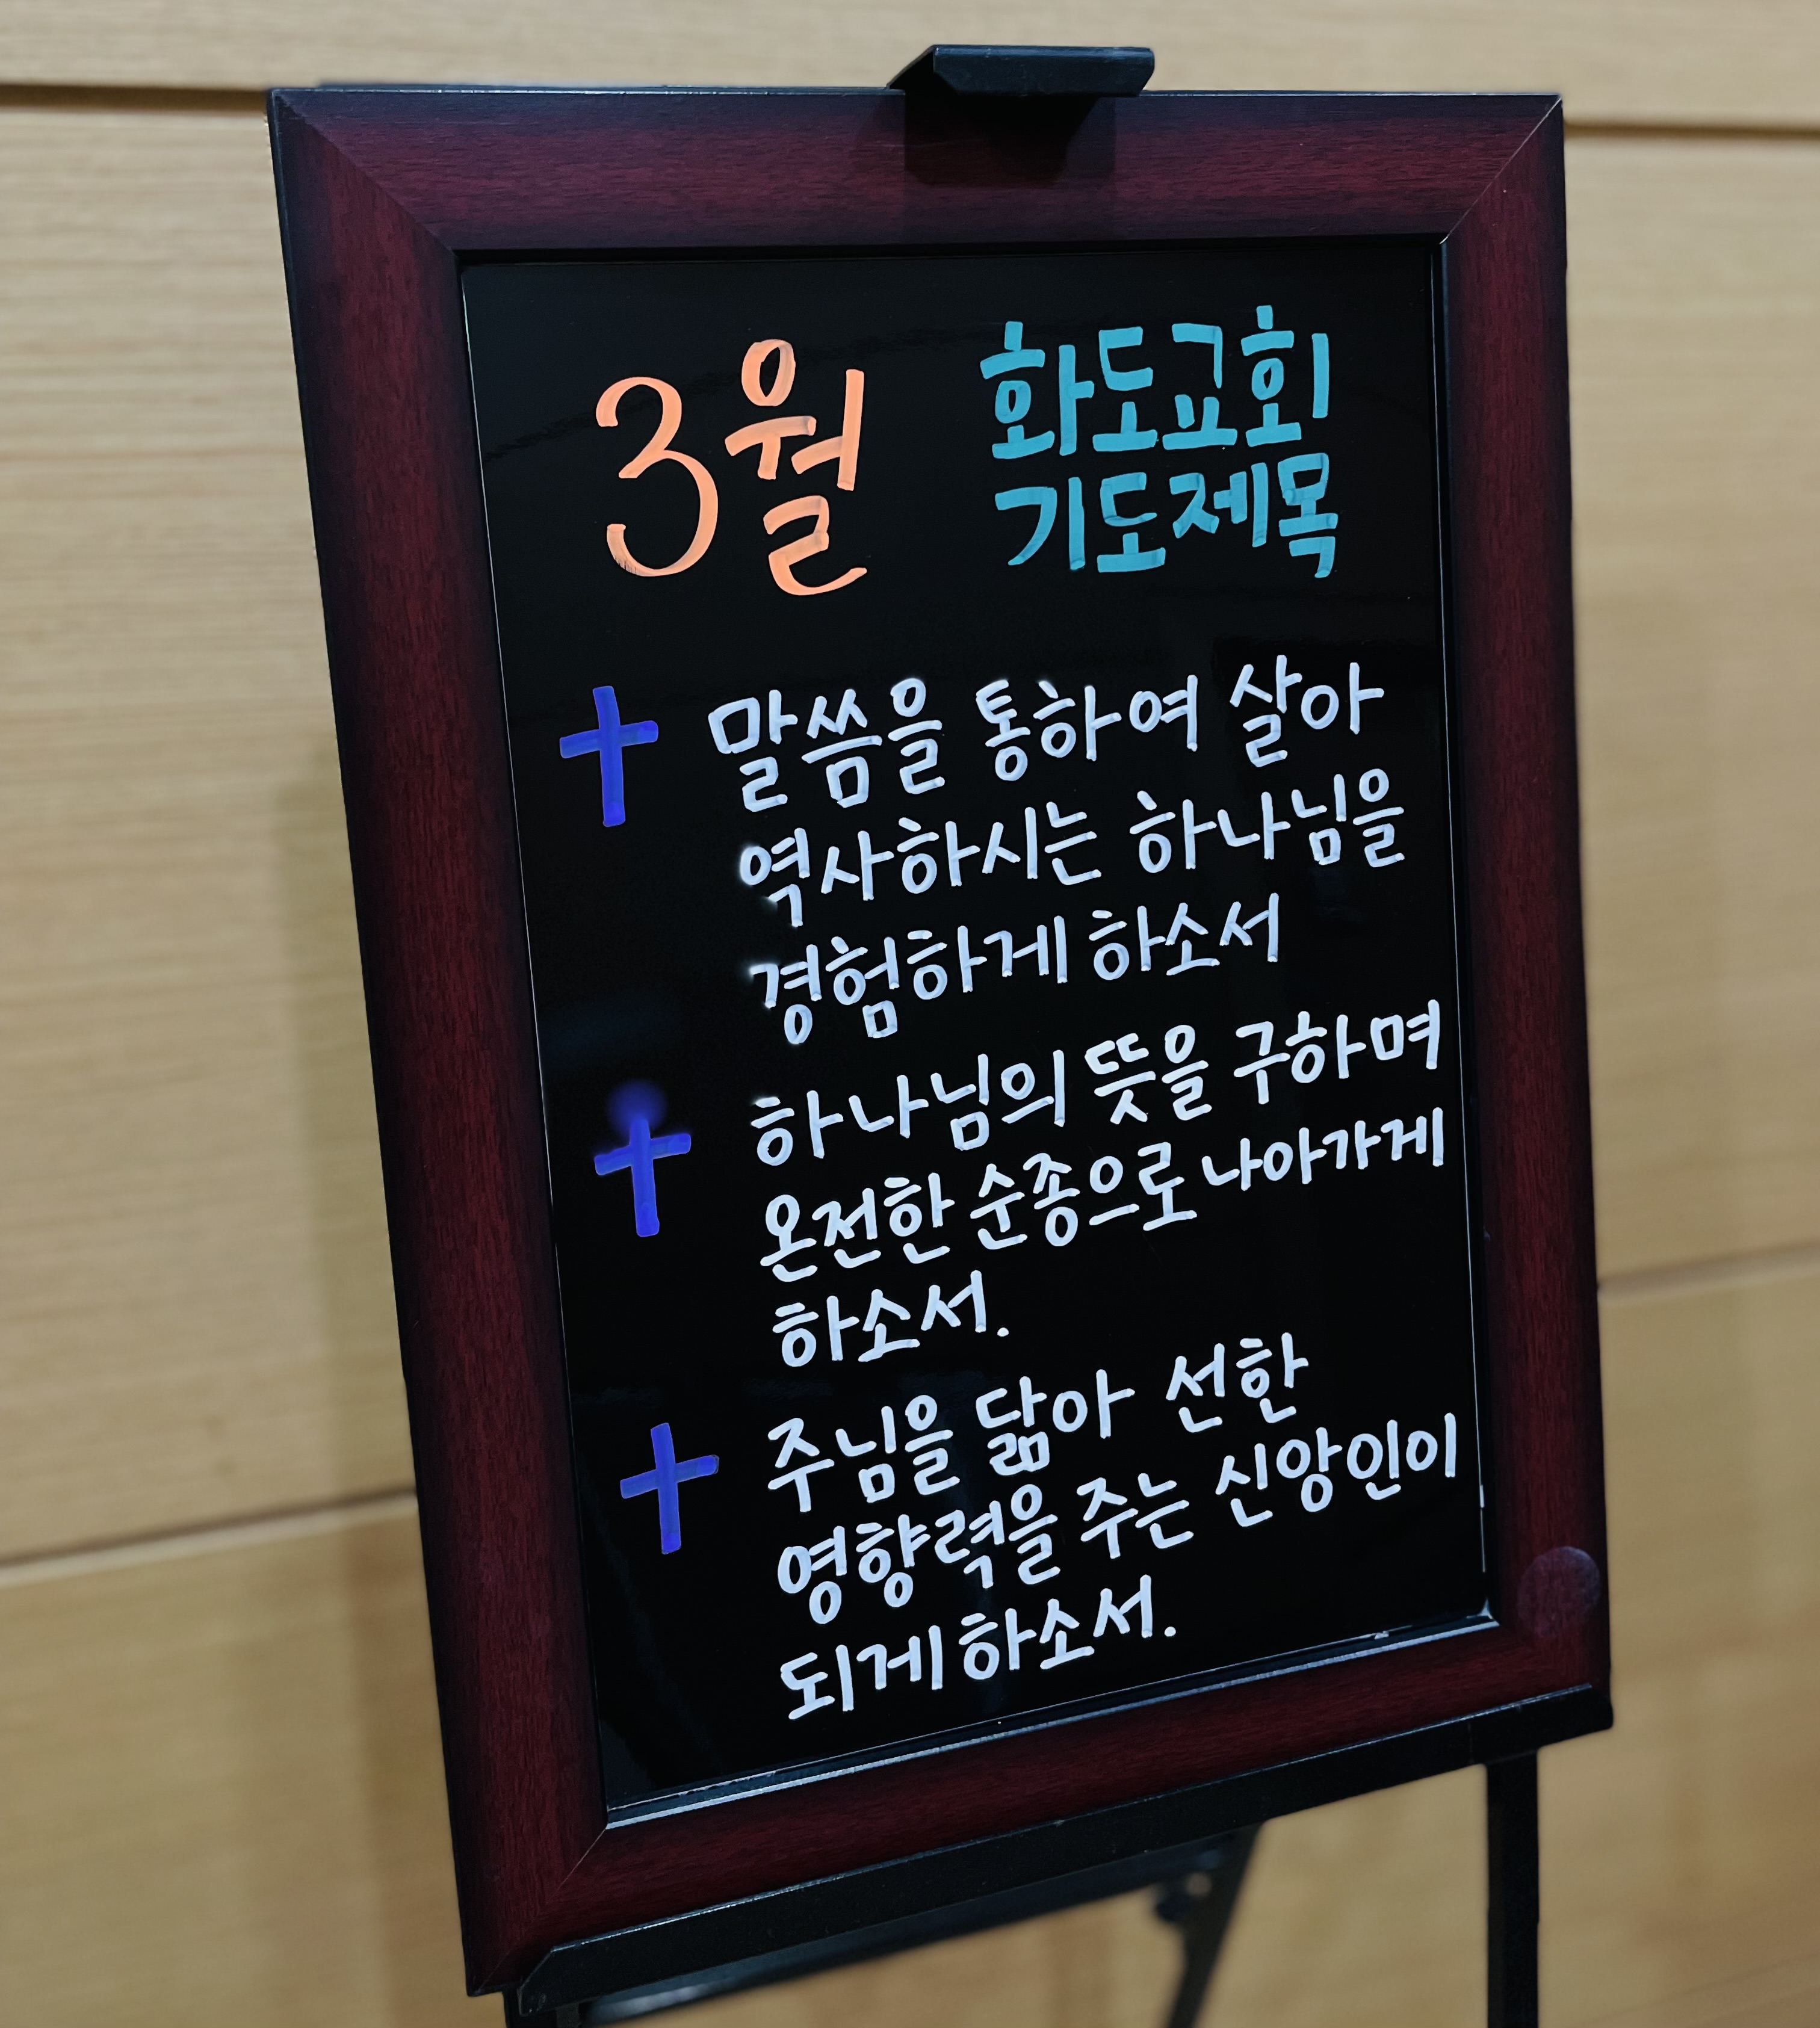 3월
화도교회
기도제목
말씀을 통하여 살아
역사하시는 하나님을
경험하게 하소서
하나님의 뜻을 구하며
온전한 순종으로 나아가게
하소서.
주님을 닮아 선한
영향력을 주는 신앙인이
되게 하소서.